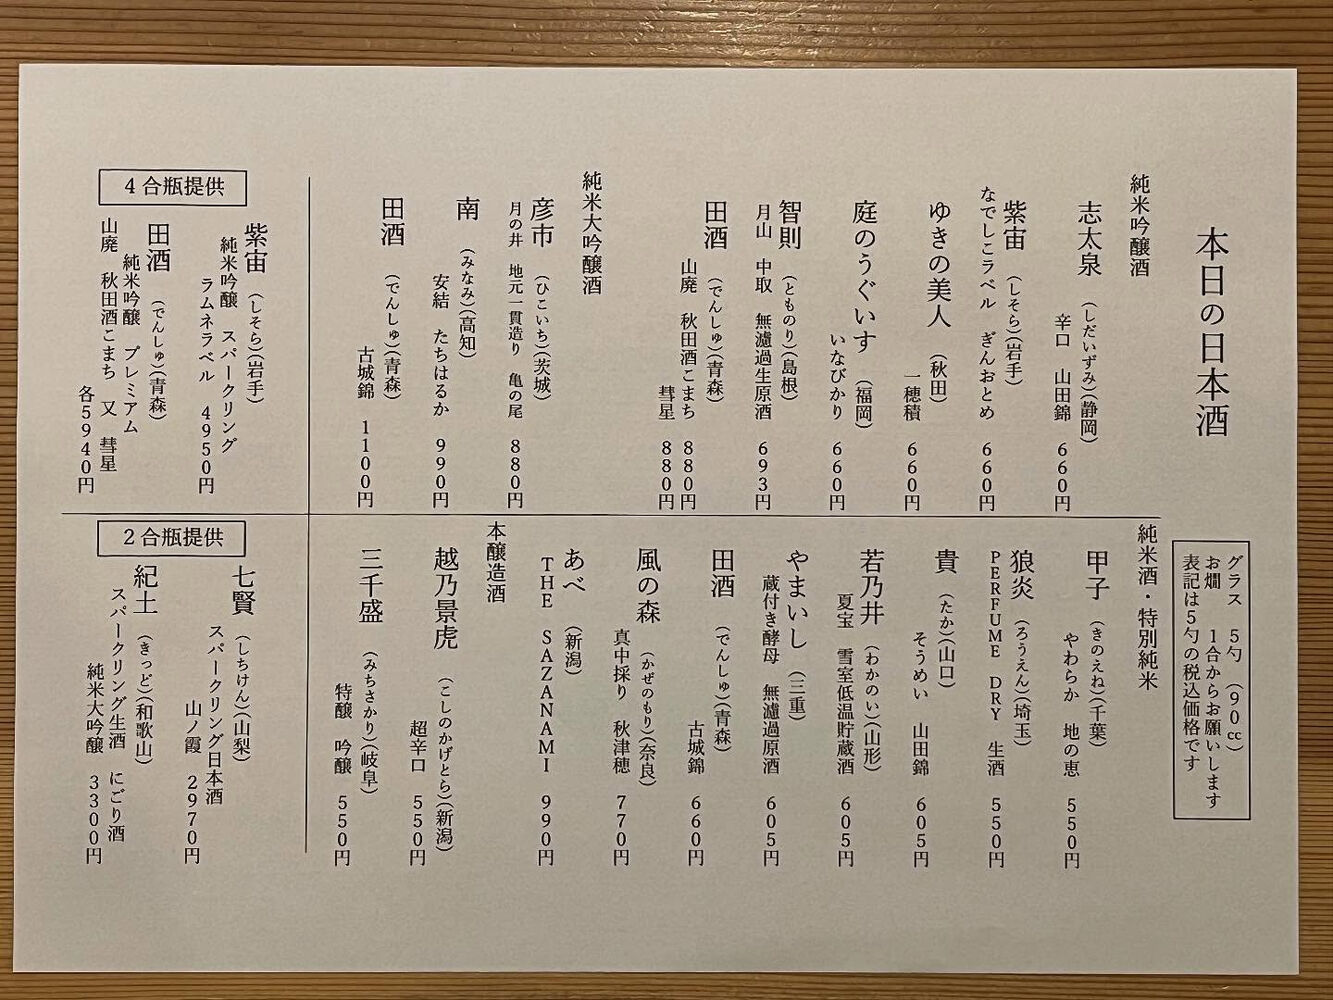 本日の日本酒
グラス　5勺　(90cc)
お燗　1合からお願いします
表記は5勺の税込価格です
純米吟醸酒
志太泉　(しだいずみ)(静岡)
辛口　山田錦　660円
紫宙　(しそら)(岩手)
なでしこラベル　ぎんおとめ　660円
ゆきの美人　(秋田)
一穂積　660円
庭のうぐいす　(福岡)
いなびかり　660円
智則　(とものり)(島根)
月山　中取　無濾過生原酒　693円
田酒　(でんしゅ)(青森)
山廃　秋田酒こまち　880円
彗星　880円
純米大吟醸酒
彦市　(ひこいち)(茨城)
月の井　地元一貫造り　亀の尾　880円
南　(みなみ)(高知)
安結　たちはるか　990円
田酒　(でんしゅ)(青森)
古城錦　1100円
純米酒・特別純米
甲子　(きのえね)(千葉)
やわらか　地の恵　550円
狼炎　(ろうえん)(埼玉)
PERFUME　DRY　生酒　550円
貴　(たか)(山口)
そうめい　山田錦　605円
若乃井　(わかのい)(山形)
夏宝　雪室低温貯蔵酒　605円
やまいし　(三重)
蔵付き酵母　無濾過原酒　605円
田酒　(でんしゅ)(青森)
古城錦　660円
風の森　(かぜのもり)(奈良)
真中採り　秋津穂　770円
あべ　(新潟)
THE　SAZANAMI　990円
本醸造酒
越乃景虎　(こしのかげとら)(新潟)
超辛口　550円
三千盛　(みちさかり)(岐阜)
特醸　吟醸　550円
4合瓶提供
紫宙　(しそら)(岩手)
純米吟醸　スパークリング
ラムネラベル　4950円
田酒　(でんしゅ)(青森)
純米吟醸　プレミアム
山廃　秋田酒こまち　又　彗星
各5940円
2合瓶提供
七賢　(しちけん)(山梨)
スパークリング日本酒
山ノ霞　2970円
紀土　(きっど)(和歌山)
スパークリング生酒　にごり酒
純米大吟醸　3300円